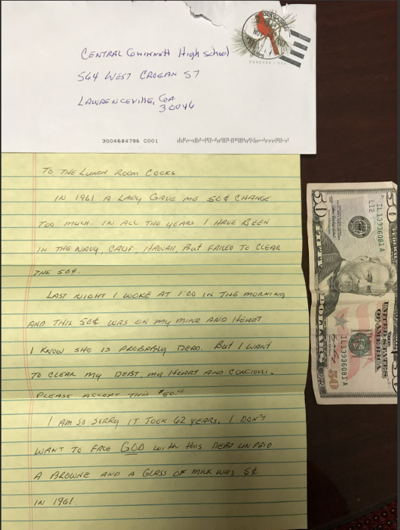 CENTRAL GWINNETT High School
564 WEST CROGAN ST
LAWRENCEVILLE, GA
30046
3004684796 C001
FOREVER
TO THE LUNCH ROOM COOKS
IN 1961 A LADY GAVE ME 50¢ CHANGE
TOO MUCH. IN ALL THE YEARS I HAVE BEEN
IN THE NAVY, CALIF, HAWAII, BUT FAILED TO CLEAR
THE 50¢.
LAST NIGHT I WOKE AT 1:00 IN THE MORNING
AND THIS 50¢ WAS ON MY MIND AND HEART
I KNOW SHE IS PROBABLY DEAD. BUT I WANT
TO CLEAR MY DEBT, MY HEART AND
PLEASE ACCEPT THIS $50.00
I AM SO SORRY IT TOOK 62 YEARS. I DON'T
WANT TO FACE GOD WITH THIS DEBT UNPAID
A BROWNE AND A GLASS OF MILK WAS 5¢
IN 1961.
50
IL 13736081 A
L12
UNITED STATES
OF AMERICA
IL 13736081 A
50